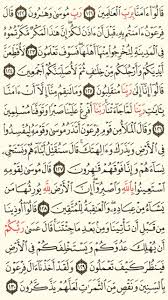 قَالُوٓاْ ءَامَنَّا بِرَبِّ ٱلۡعَٰلَمِينَ ١٢١ رَبِّ مُوسَىٰ وَهَٰرُونَ ١٢٢ قَالَ
فِرۡعَوۡنُ ءَامَنتُم بِهِۦ قَبۡلَ أَنۡ ءَاذَنَ لَكُمۡۖ إِنَّ هَٰذَا لَمَكۡرٞ مَّكَرۡتُمُوهُ
فِي ٱلۡمَدِينَةِ لِتُخۡرِجُواْ مِنۡهَآ أَهۡلَهَاۖ فَسَوۡفَ تَعۡلَمُونَ ١٢٣ لَأُقَطِّعَنَّ
أَيۡدِيَكُمۡ وَأَرۡجُلَكُم مِّنۡ خِلَٰفٖ ثُمَّ لَأُصَلِّبَنَّكُمۡ أَجۡمَعِينَ ١٢٤
قَالُوٓاْ إِنَّآ إِلَىٰ رَبِّنَا مُنقَلِبُونَ ١٢٥ وَمَا تَنقِمُ مِنَّآ إِلَّآ أَنۡ ءَامَنَّا
بِـَٔايَٰتِ رَبِّنَا لَمَّا جَآءَتۡنَاۚ رَبَّنَآ أَفۡرِغۡ عَلَيۡنَا صَبۡرٗا وَتَوَفَّنَا مُسۡلِمِينَ
١٢٦ وَقَالَ ٱلۡمَلَأُ مِن قَوۡمِ فِرۡعَوۡنَ أَتَذَرُ مُوسَىٰ وَقَوۡمَهُۥ لِيُفۡسِدُواْ
فِي ٱلۡأَرۡضِ وَيَذَرَكَ وَءَالِهَتَكَۚ قَالَ سَنُقَتِّلُ أَبۡنَآءَهُمۡ وَنَسۡتَحۡيِۦ
نِسَآءَهُمۡ وَإِنَّا فَوۡقَهُمۡ قَٰهِرُونَ ١٢٧ قَالَ مُوسَىٰ لِقَوۡمِهِ
ٱسۡتَعِينُواْ بِٱللَّهِ وَٱصۡبِرُوٓاْۖ إِنَّ ٱلۡأَرۡضَ لِلَّهِ يُورِثُهَا مَن
يَشَآءُ مِنۡ عِبَادِهِۦۖ وَٱلۡعَٰقِبَةُ لِلۡمُتَّقِينَ ١٢٨ قَالُوٓاْ أُوذِينَا
مِن قَبۡلِ أَن تَأۡتِيَنَا وَمِنۢ بَعۡدِ مَا جِئۡتَنَاۚ قَالَ عَسَىٰ رَبُّكُمۡ
أَن يُهۡلِكَ عَدُوَّكُمۡ وَيَسۡتَخۡلِفَكُمۡ فِي ٱلۡأَرۡضِ
فَيَنظُرَ كَيۡفَ تَعۡمَلُونَ ١٢٩ وَلَقَدۡ أَخَذۡنَآ ءَالَ فِرۡعَوۡنَ
بِٱلسِّنِينَ وَنَقۡصٖ مِّنَ ٱلثَّمَرَٰتِ لَعَلَّهُمۡ يَذَّكَّرُونَ ١٣٠